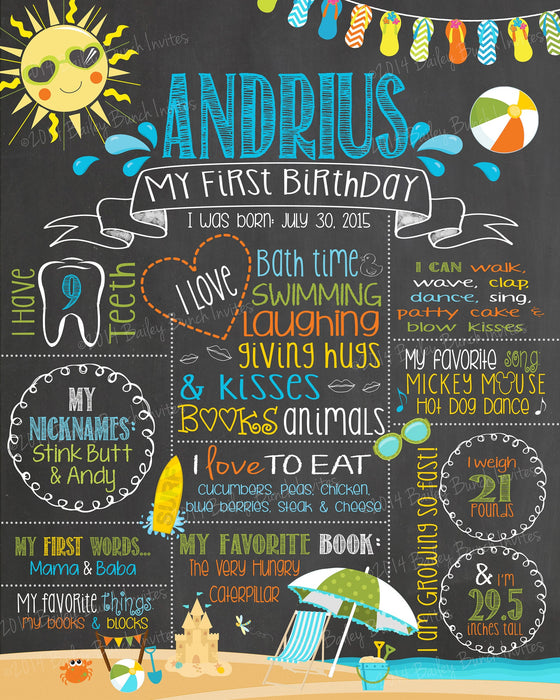 ANDRIUS
MY FIRST BIRTHDAY
I WAS BORN: JULY 30, 2015
I HAVE
9
TEETH
I LOVE
BATH TIME
SWIMMING
LAUGHING
GIVING HUGS
& KISSES
BOOKS ANIMALS
I CAN WALK,
WAVE, CLAP,
DANCE, SING,
PATTY CAKE &
BLOW KISSES
MY FAVORITE SONG:
MICKEY MOUSE
HOT DOG DANCE
MY
NICKNAMES:
STINK BUTT
& ANDY
I LOVE TO EAT
CUCUMBERS, PEAS, CHICKEN,
BLUE BERRIES, STEAK & CHEESE
SURF
I AM GROWING SO FAST!
I WEIGH
21
POUNDS
& I'M
29.5
INCHES TALL
MY FIRST WORDS...
MAMA & BABA
MY FAVORITE BOOK:
THE VERY HUNGRY
CATERPILLAR
MY FAVORITE THINGS:
MY BOOKS & BLOCKS
©2014 Bailey Bunch Invites